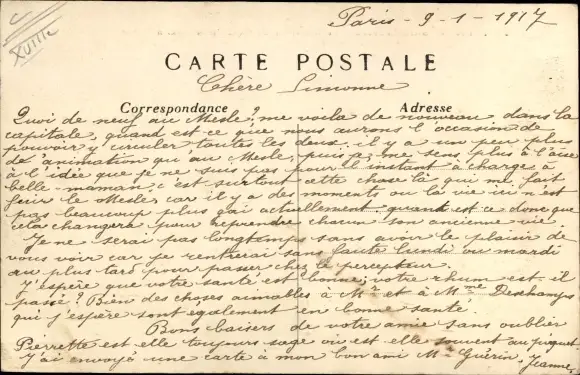 XVIIIe
Paris - 9 - 1 - 1917
CARTE POSTALE
Chère Simonne
Correspondance Adresse
Quoi de neuf au Mesle? me voila de nouveau dans la
capitale, quand est ce que nous aurons l'occasion de
pouvoir y circuler toutes les deux. il y a un peu plus
de l'animation qui au Mesle, puis je me sens plus à l'aise
à l'idée que je ne suis pas pour l'instant à charge à
belle-maman, c'est surtout cette chose là qui me fait
fuir le Mesle, car il y a des moments ou la vie ici n'est
pas beaucoup plus gai actuellement. quand est ce donc que
cela changera pour reprendre chacun son ancienne vie.
Je ne serai pas longtemps sans avoir le plaisir de
vous voir car je rentrerai sans faute lundi ou mardi
au plus tard pour passer chez le percepteur.
J'espère que votre santé est bonne; votre rhum est-il
passé? Bien des choses aimables à Mr et à Mme Deschamps
qui j'espère sont également en bonne santé.
Bons baisers de votre amie sans oublier
Pierrette est elle toujours sage ou est elle souvent au piquet
J'ai envoyé une carte à mon bon ami Mr Guérin, Jeanne.